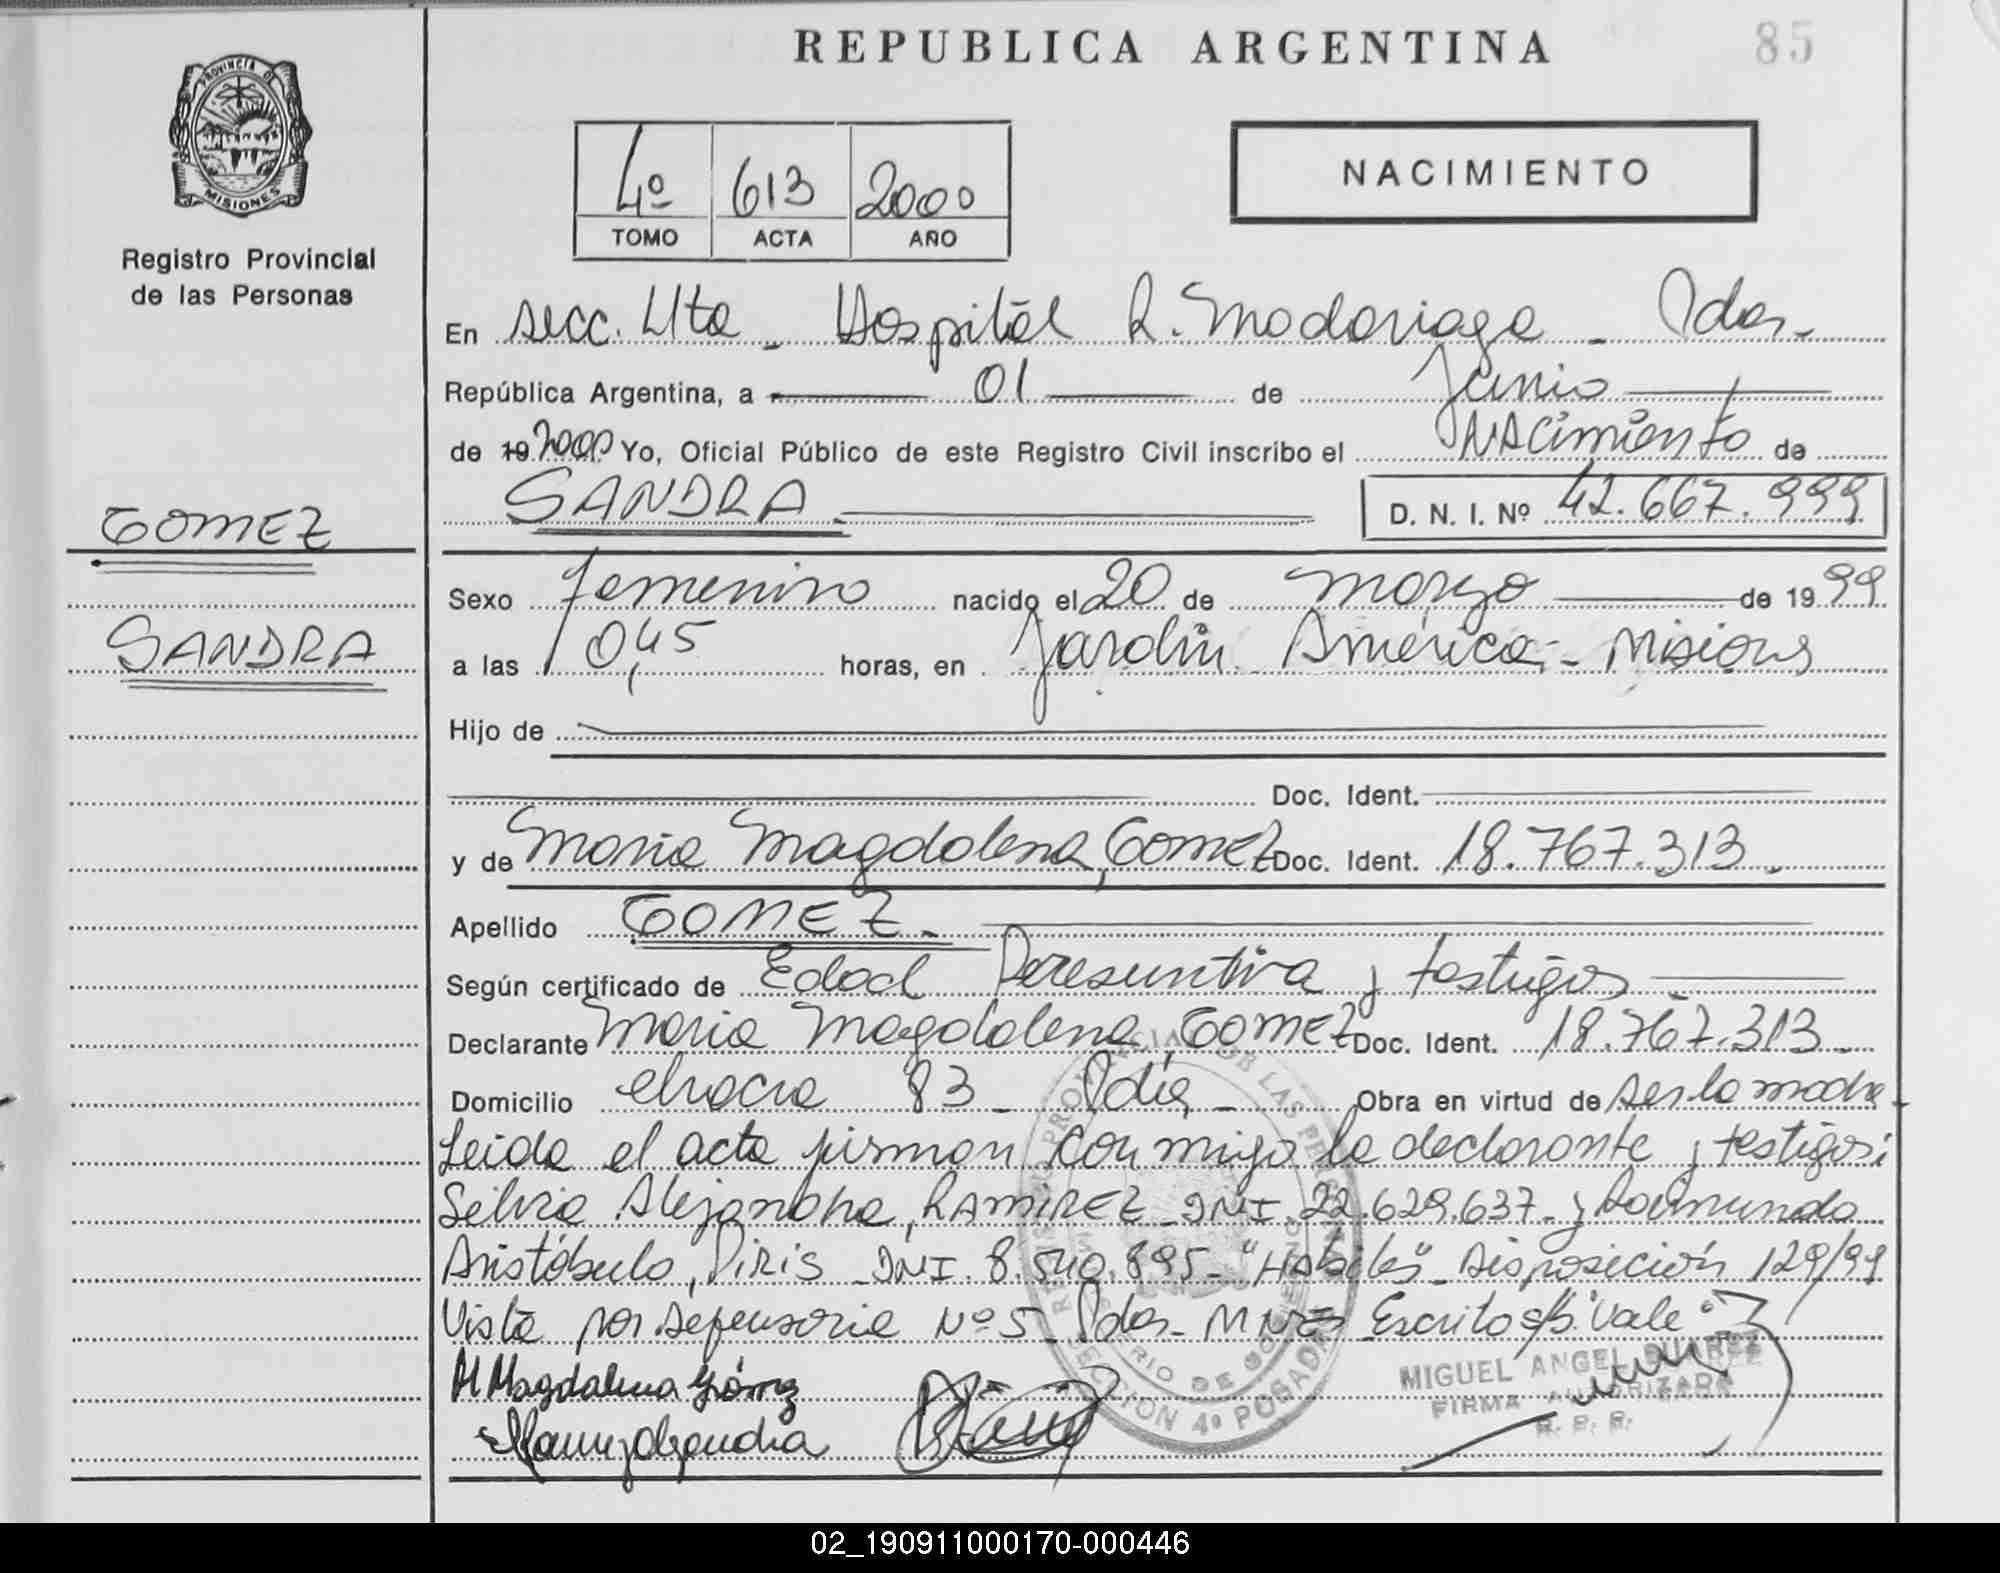 REPUBLICA ARGENTINA
85
PROVINCIA DE
MISIONES
Registro Provincial
de las Personas
4º 613 2000
TOMO ACTA AÑO
NACIMIENTO
En secc. 4ta - Hospital R. Madariaga - Pdas.-
República Argentina, a 01 de Junio
de 19 2000 Yo, Oficial Público de este Registro Civil inscribo el Nacimiento de
SANDRA D. N. I. Nº 42.667.999
GOMEZ
SANDRA
Sexo femenino nacido el 20 de marzo de 19 99
a las 0,45 horas, en Jardín América - Misiones
Hijo de
Doc. Ident.
y de Maria Magdalena, Gomez Doc. Ident. 18.767.313.
Apellido GOMEZ.
Según certificado de Edad Peresuntiva y testigos
Declarante Maria Magdalena, GOMEZ Doc. Ident. 18.767.313.
Domicilio chacra 83 - Pdas - Obra en virtud de ser la madre
Leida el acta firman conmigo la declarante y testigos:
Silvia Alejandra, RAMIREZ - DNI. 22.629.637 - y Raimundo
Aristóbulo, PIRIS - DNI. 8.540.895 - "Habiles" - Disposición 129/99
Vista por Defensoria Nº 5 - Pdas - MNES Escrito s/b. "2000" Vale
M Magdalena Gómez
MIGUEL ANGEL DUARTE
FIRMA AUTORIZADA
R. P. P.
SECCION 4ª POSADAS
02_190911000170-000446